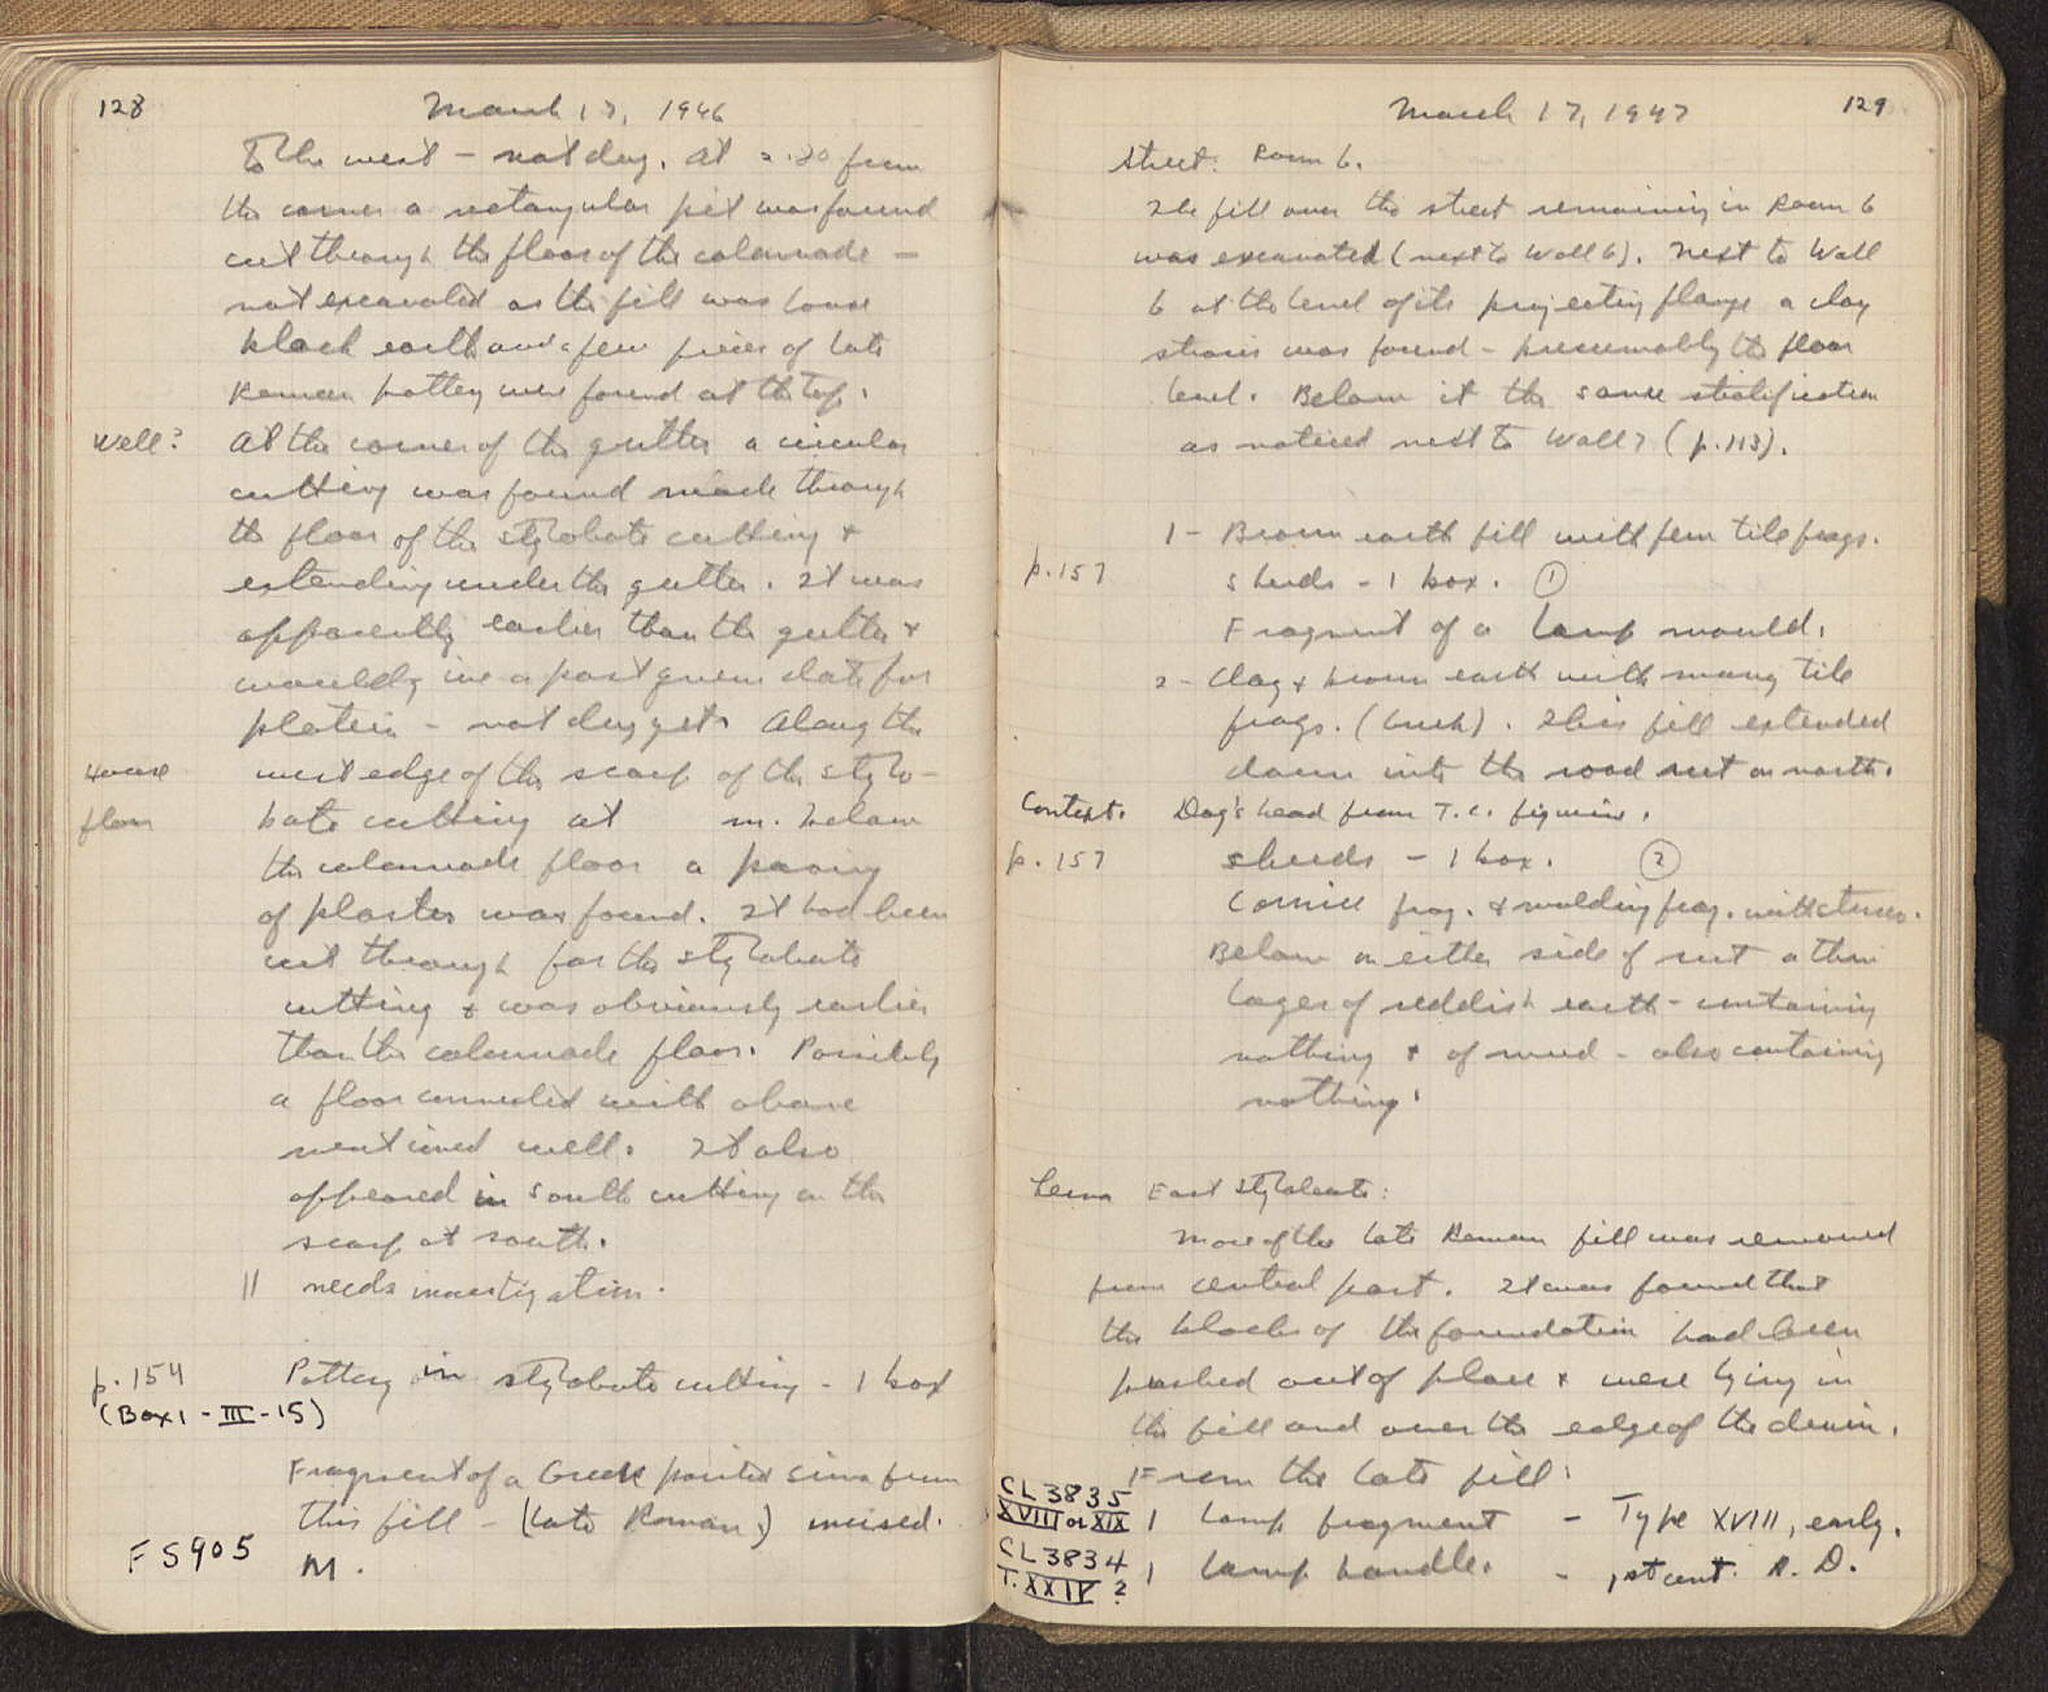 128
March 17, 1946
To the west - not dug. At 2.20 from
the corner a rectangular pit was found
cut through the floor of the colonnade -
not excavated as the fill was loose
black earth and a few pieces of late
Roman pottery were found at the top.
Well? At the corner of the gutter a circular
cutting was found made through
the floor of the stylobate cutting &
extending under the gutter. It was
apparently earlier than the gutter &
would give a post quem date for
- not dug yet. Along the
House west edge of the scarp of the stylo-
floor bate cutting at m. below
the colonnade floor a paving
of plaster was found. It had been
cut through for the stylobate
cutting & was obviously earlier
than the colonnade floor. Possibly
a floor connected with above
mentioned well. It also
appeared in south cutting on the
scarp at south.
|| needs investigation.
p. 154 Pottery in stylobate cutting - 1 box
(Box 1 - III - 15)
Fragment of a Greek painted sima from
this fill - (late Roman) incised.
FS905 M.
129
March 17, 1947
Street: Room 6.
The fill over the street remaining in Room 6
was excavated (next to Wall 6). Next to Wall
6 at the level of its projecting flange a clay
strosis was found - presumably the floor
level. Below it the same stratification
as noticed next to Wall 7 (p. 113).
1 - Brown earth fill with few tile frags.
p. 157 sherds - 1 box. (1)
Fragment of a lamp mould.
2 - Clay & brown earth with many tile
frags. (brick). This fill extended
down into the road rut on north.
Context. Dog's head from T.C. figurine.
p. 157 sherds - 1 box. (2)
Cornice frag. & molding frag. with stucco.
Below on either side of rut a thin
layer of reddish earth - containing
nothing & of mud - also containing
nothing.
East Stylobate:
More of the late Roman fill was removed
from central part. It was found that
the blocks of the foundation had been
pushed out of place & were lying in
the fill and over the edge of the drain.
From the late fill:
CL 3835
XVIII or XIX 1 lamp fragment - Type XVIII, early.
CL 3834
T. XXIV ? 1 lamp handle. - 1st cent. A.D.